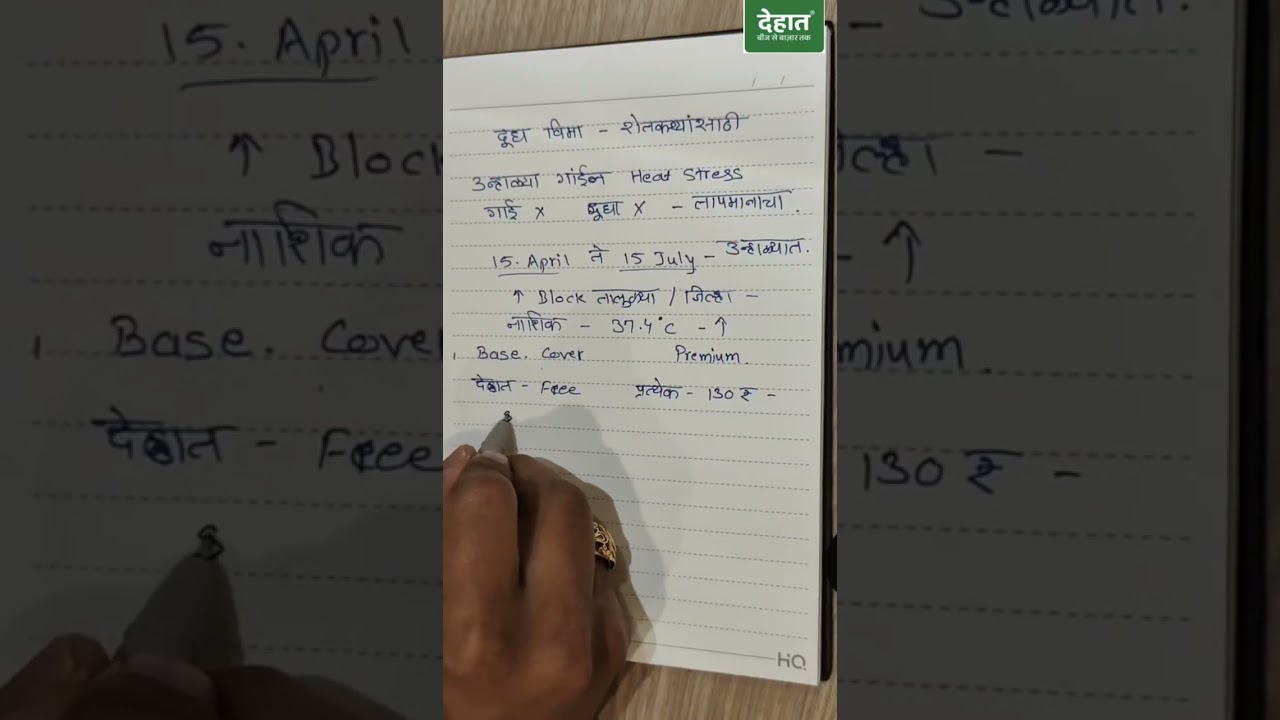 देहात
बीज से बाज़ार तक
दूध विमा - शेतकऱ्यांसाठी
उन्हाळ्या गाईल Heat Stress
गाई x दूधा x - तापमानाचा.
15. April ते 15 July - उन्हाळ्यात.
↑ Block तालुक्या / जिल्हा -
नाशिक - 37.4°C - ↑
Base. Cover Premium.
देहात - Free प्रत्येक - 130 ₹ -
HQ